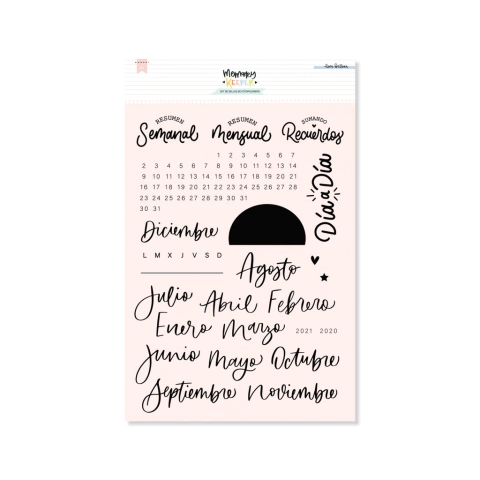 Memory
KEEPER
RESUMEN
Semanal
RESUMEN
Mensual
SUMANDO
Recuerdos
1 2 3 4 5 6 7
2 3 4 5 6 7 8 9 10 11 12 13 14
9 10 11 12 13 14 15 16 17 18 19 20 21
16 17 18 19 20 21 22 23 24 25 26 27 28
23 24 25 26 27 28 29 30 31
30 31
Día a Día
Diciembre
L M X J V S D
Agosto
Julio Abril Febrero
Enero Marzo 2021 2020
Junio Mayo Octubre
Septiembre Noviembre